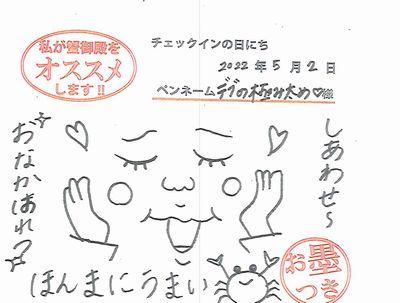 私が蟹御殿を
オススメ
します!!
チェックインの日にち
2022年5月2日
ペンネーム デブの極み太め♡様
しあわせ~
おなかはれつ
ほんまにうまい
お墨
つき